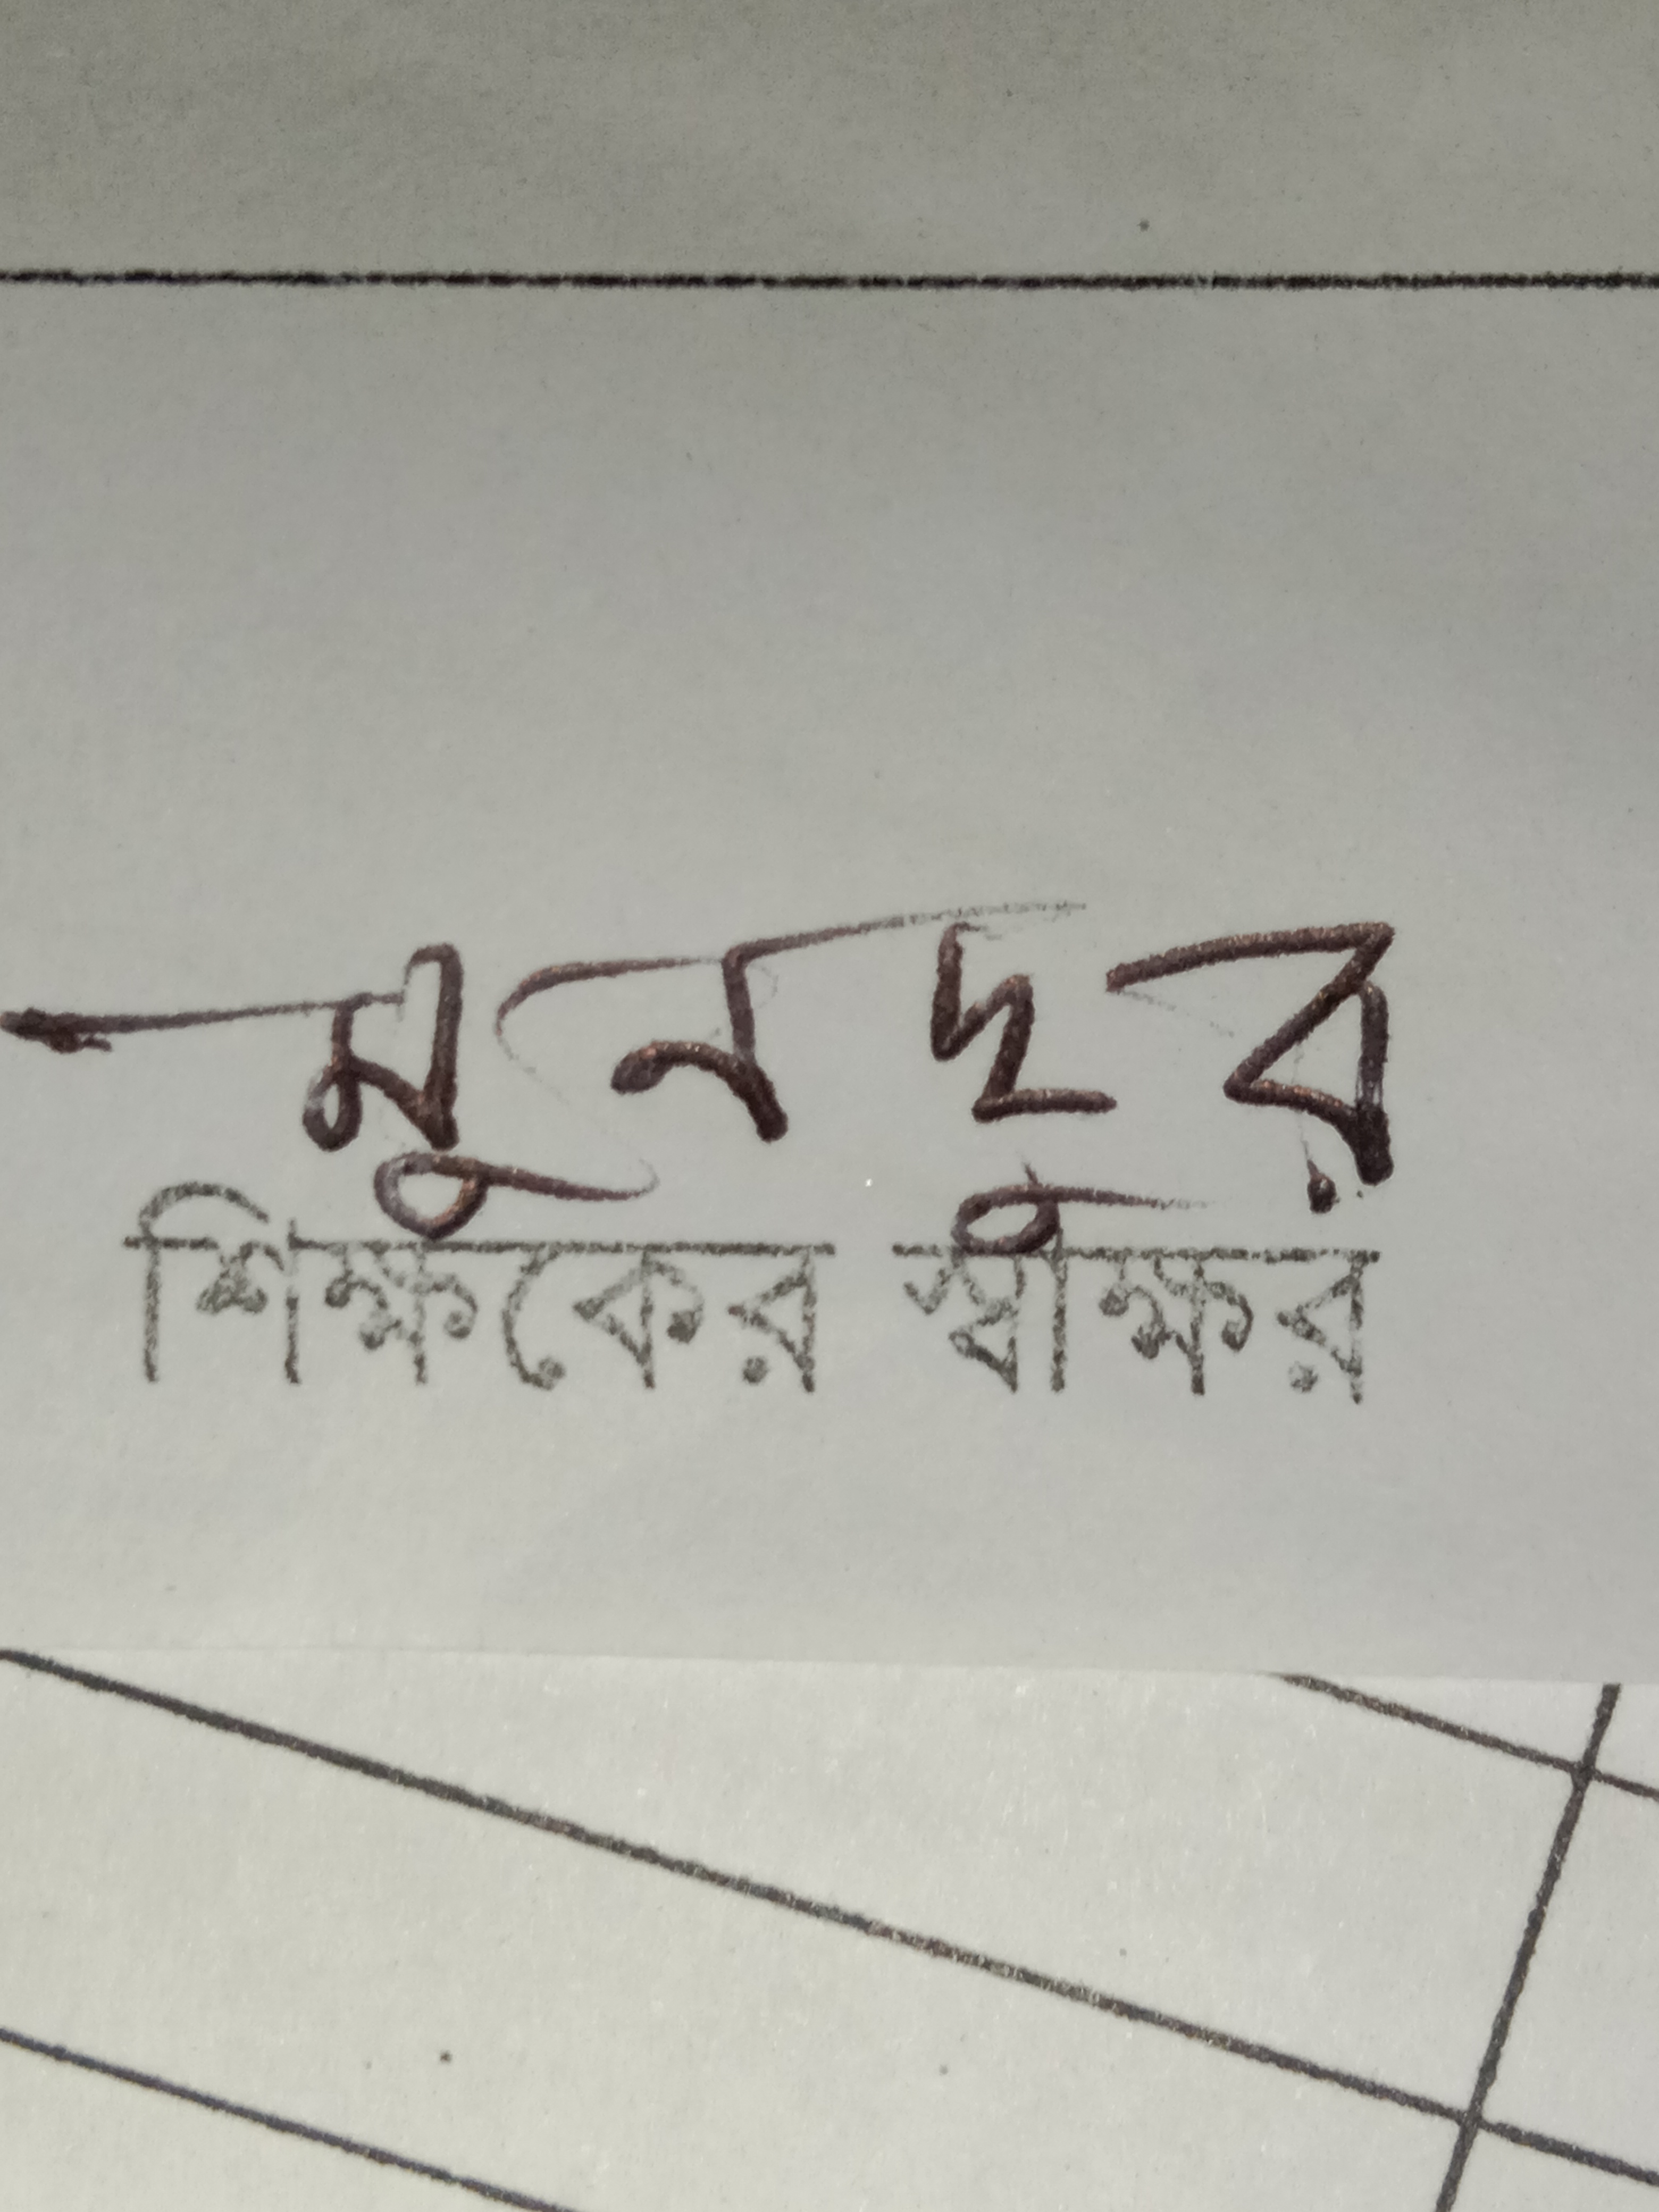 মুনদুর
শিক্ষকের স্বাক্ষর